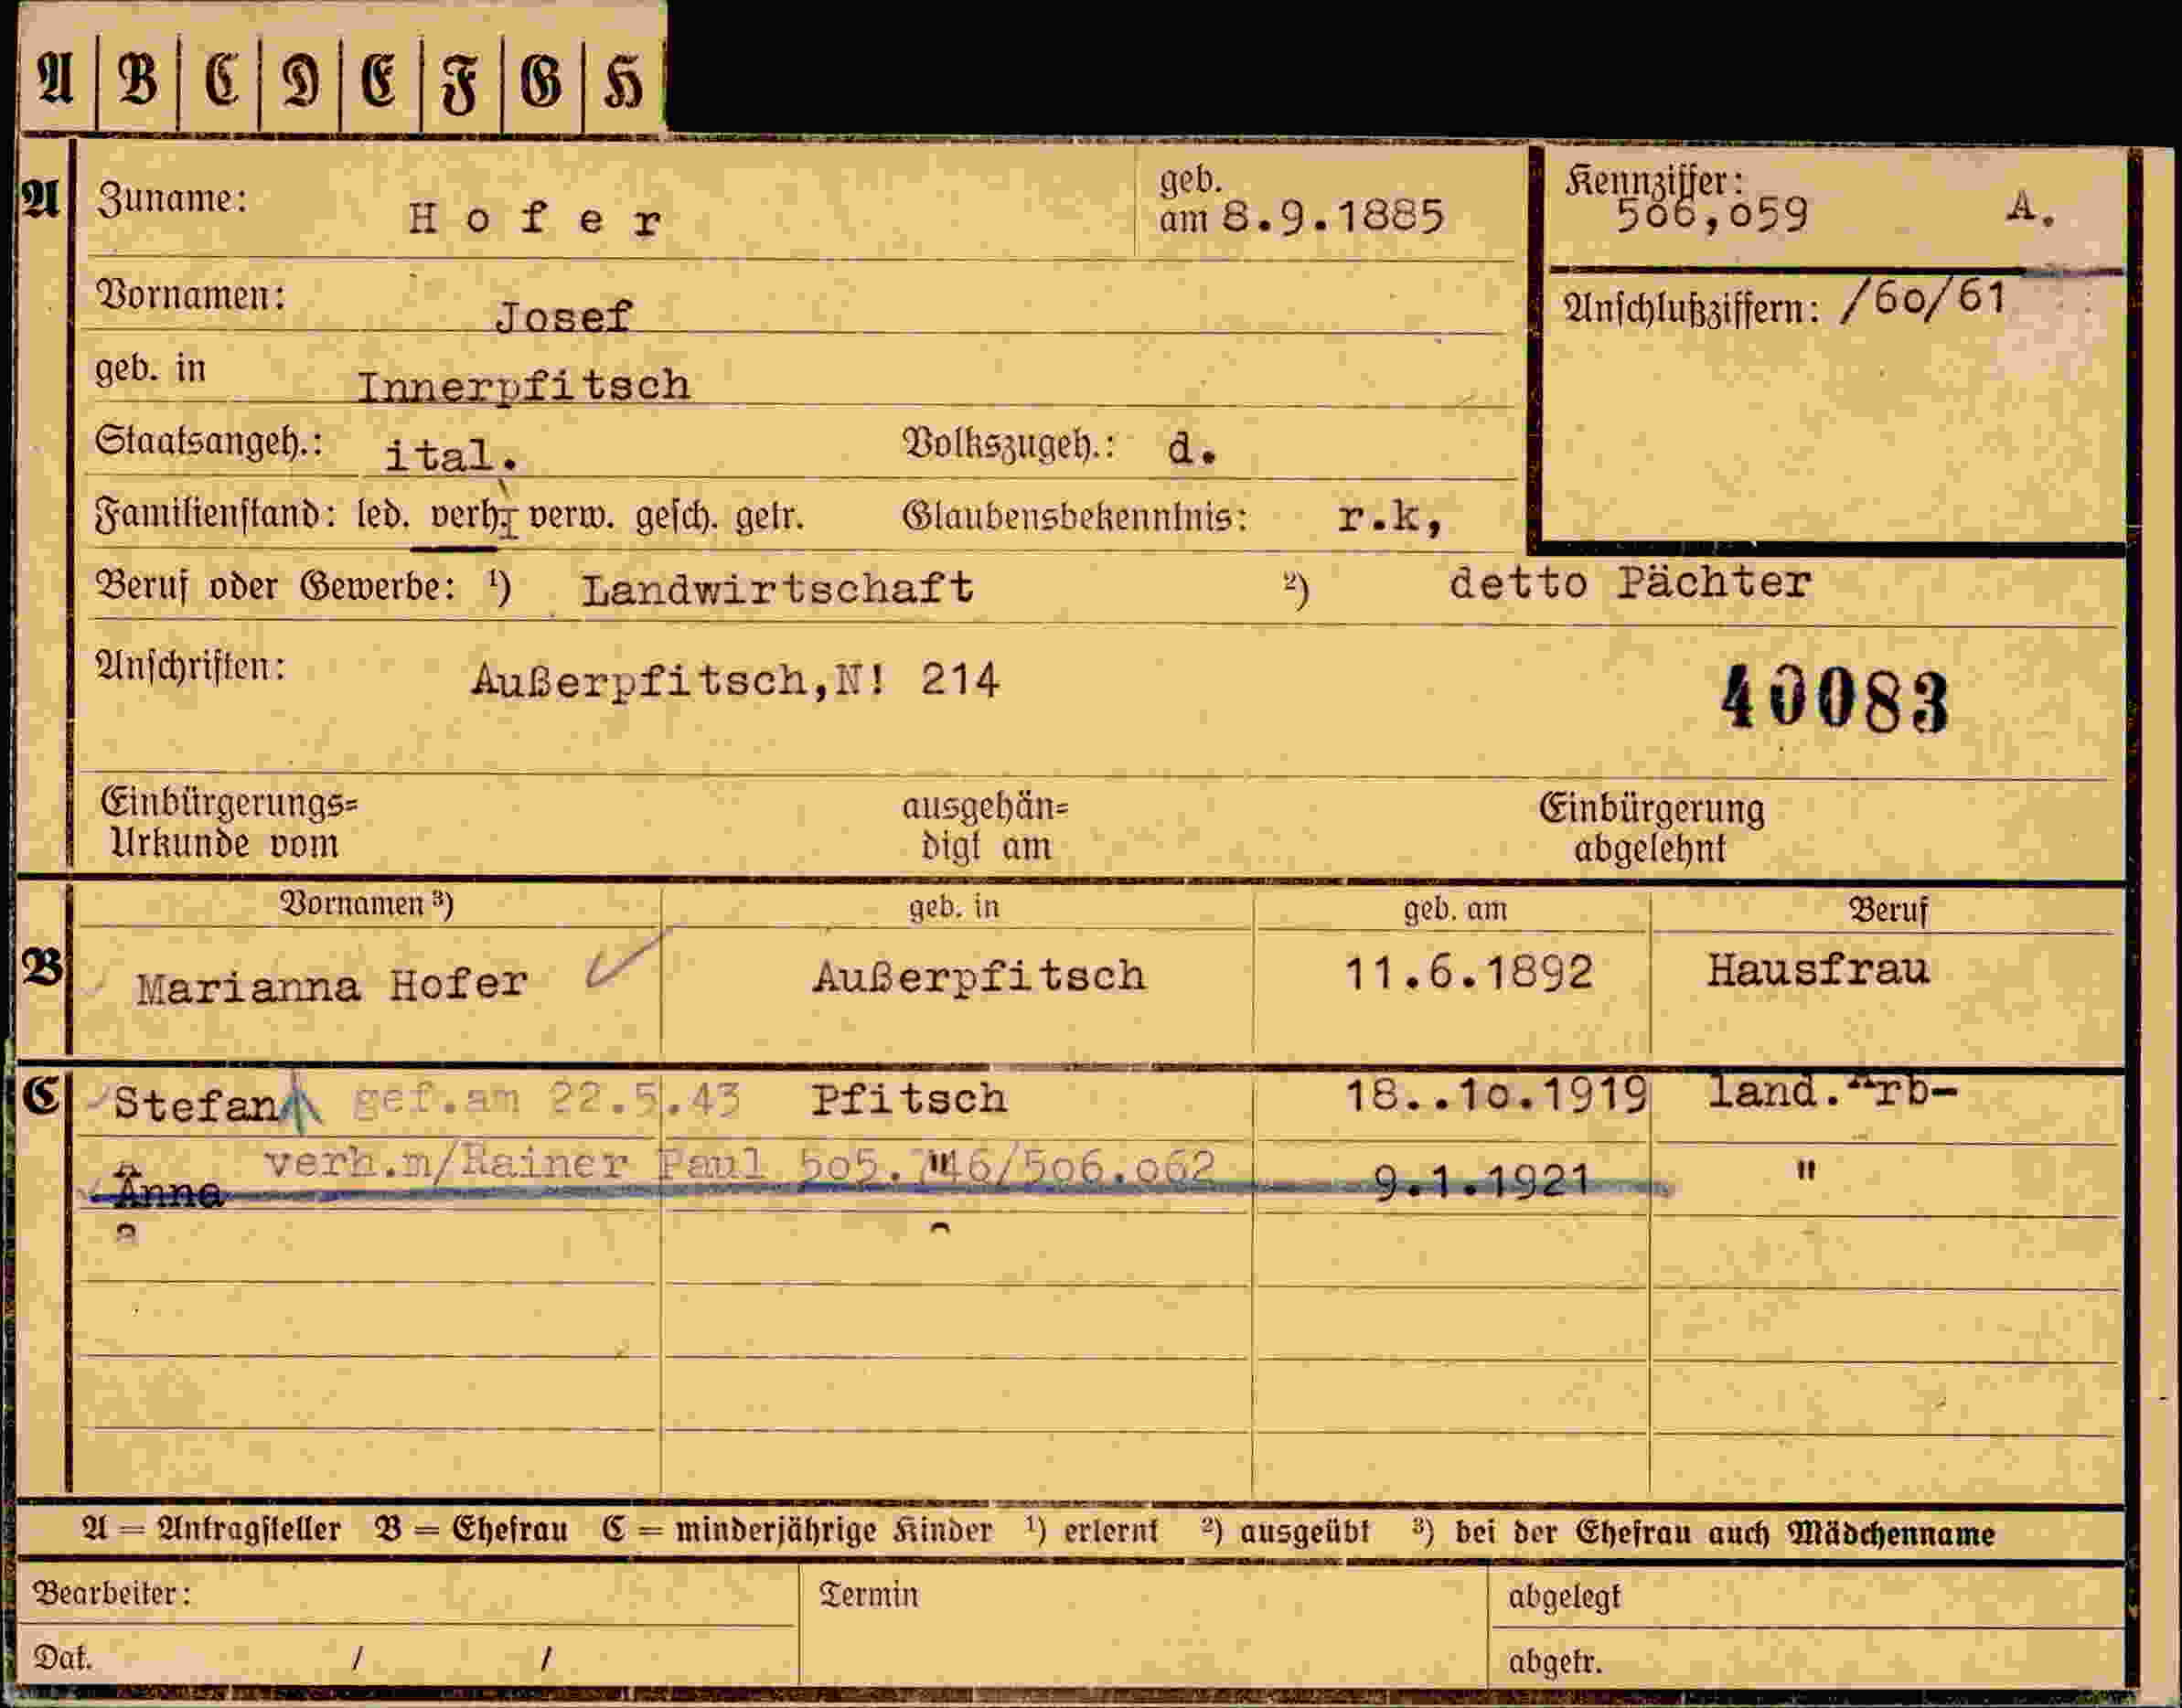 A | B | C | D | E | F | G | H
A Zuname: Hofer geb. am 8.9.1885 Kennziffer: 506,059 A.
Vornamen: Josef Anschlußziffern: /60/61
geb. in Innerpfitsch
Staatsangeh.: ital. Volkszugeh.: d.
Familienstand: led. verh. verw. gesch. getr. Glaubensbekenntnis: r.k,
Beruf oder Gewerbe: ¹) Landwirtschaft ²) detto Pächter
Anschriften: Außerpfitsch,N! 214 40083
Einbürgerungs= ausgehän= Einbürgerung
Urkunde vom digt am abgelehnt
Vornamen ³) geb. in geb. am Beruf
B Marianna Hofer Außerpfitsch 11.6.1892 Hausfrau
C Stefan gef.am 22.5.43 Pfitsch 18..10.1919 land.Arb-
verh.m/Rainer Paul 505.746/506.062
Anna " 9.1.1921 "
A = Antragsteller B = Ehefrau C = minderjährige Kinder ¹) erlernt ²) ausgeübt ³) bei der Ehefrau auch Mädchenname
Bearbeiter: Termin abgelegt
Dat. / / abgetr.